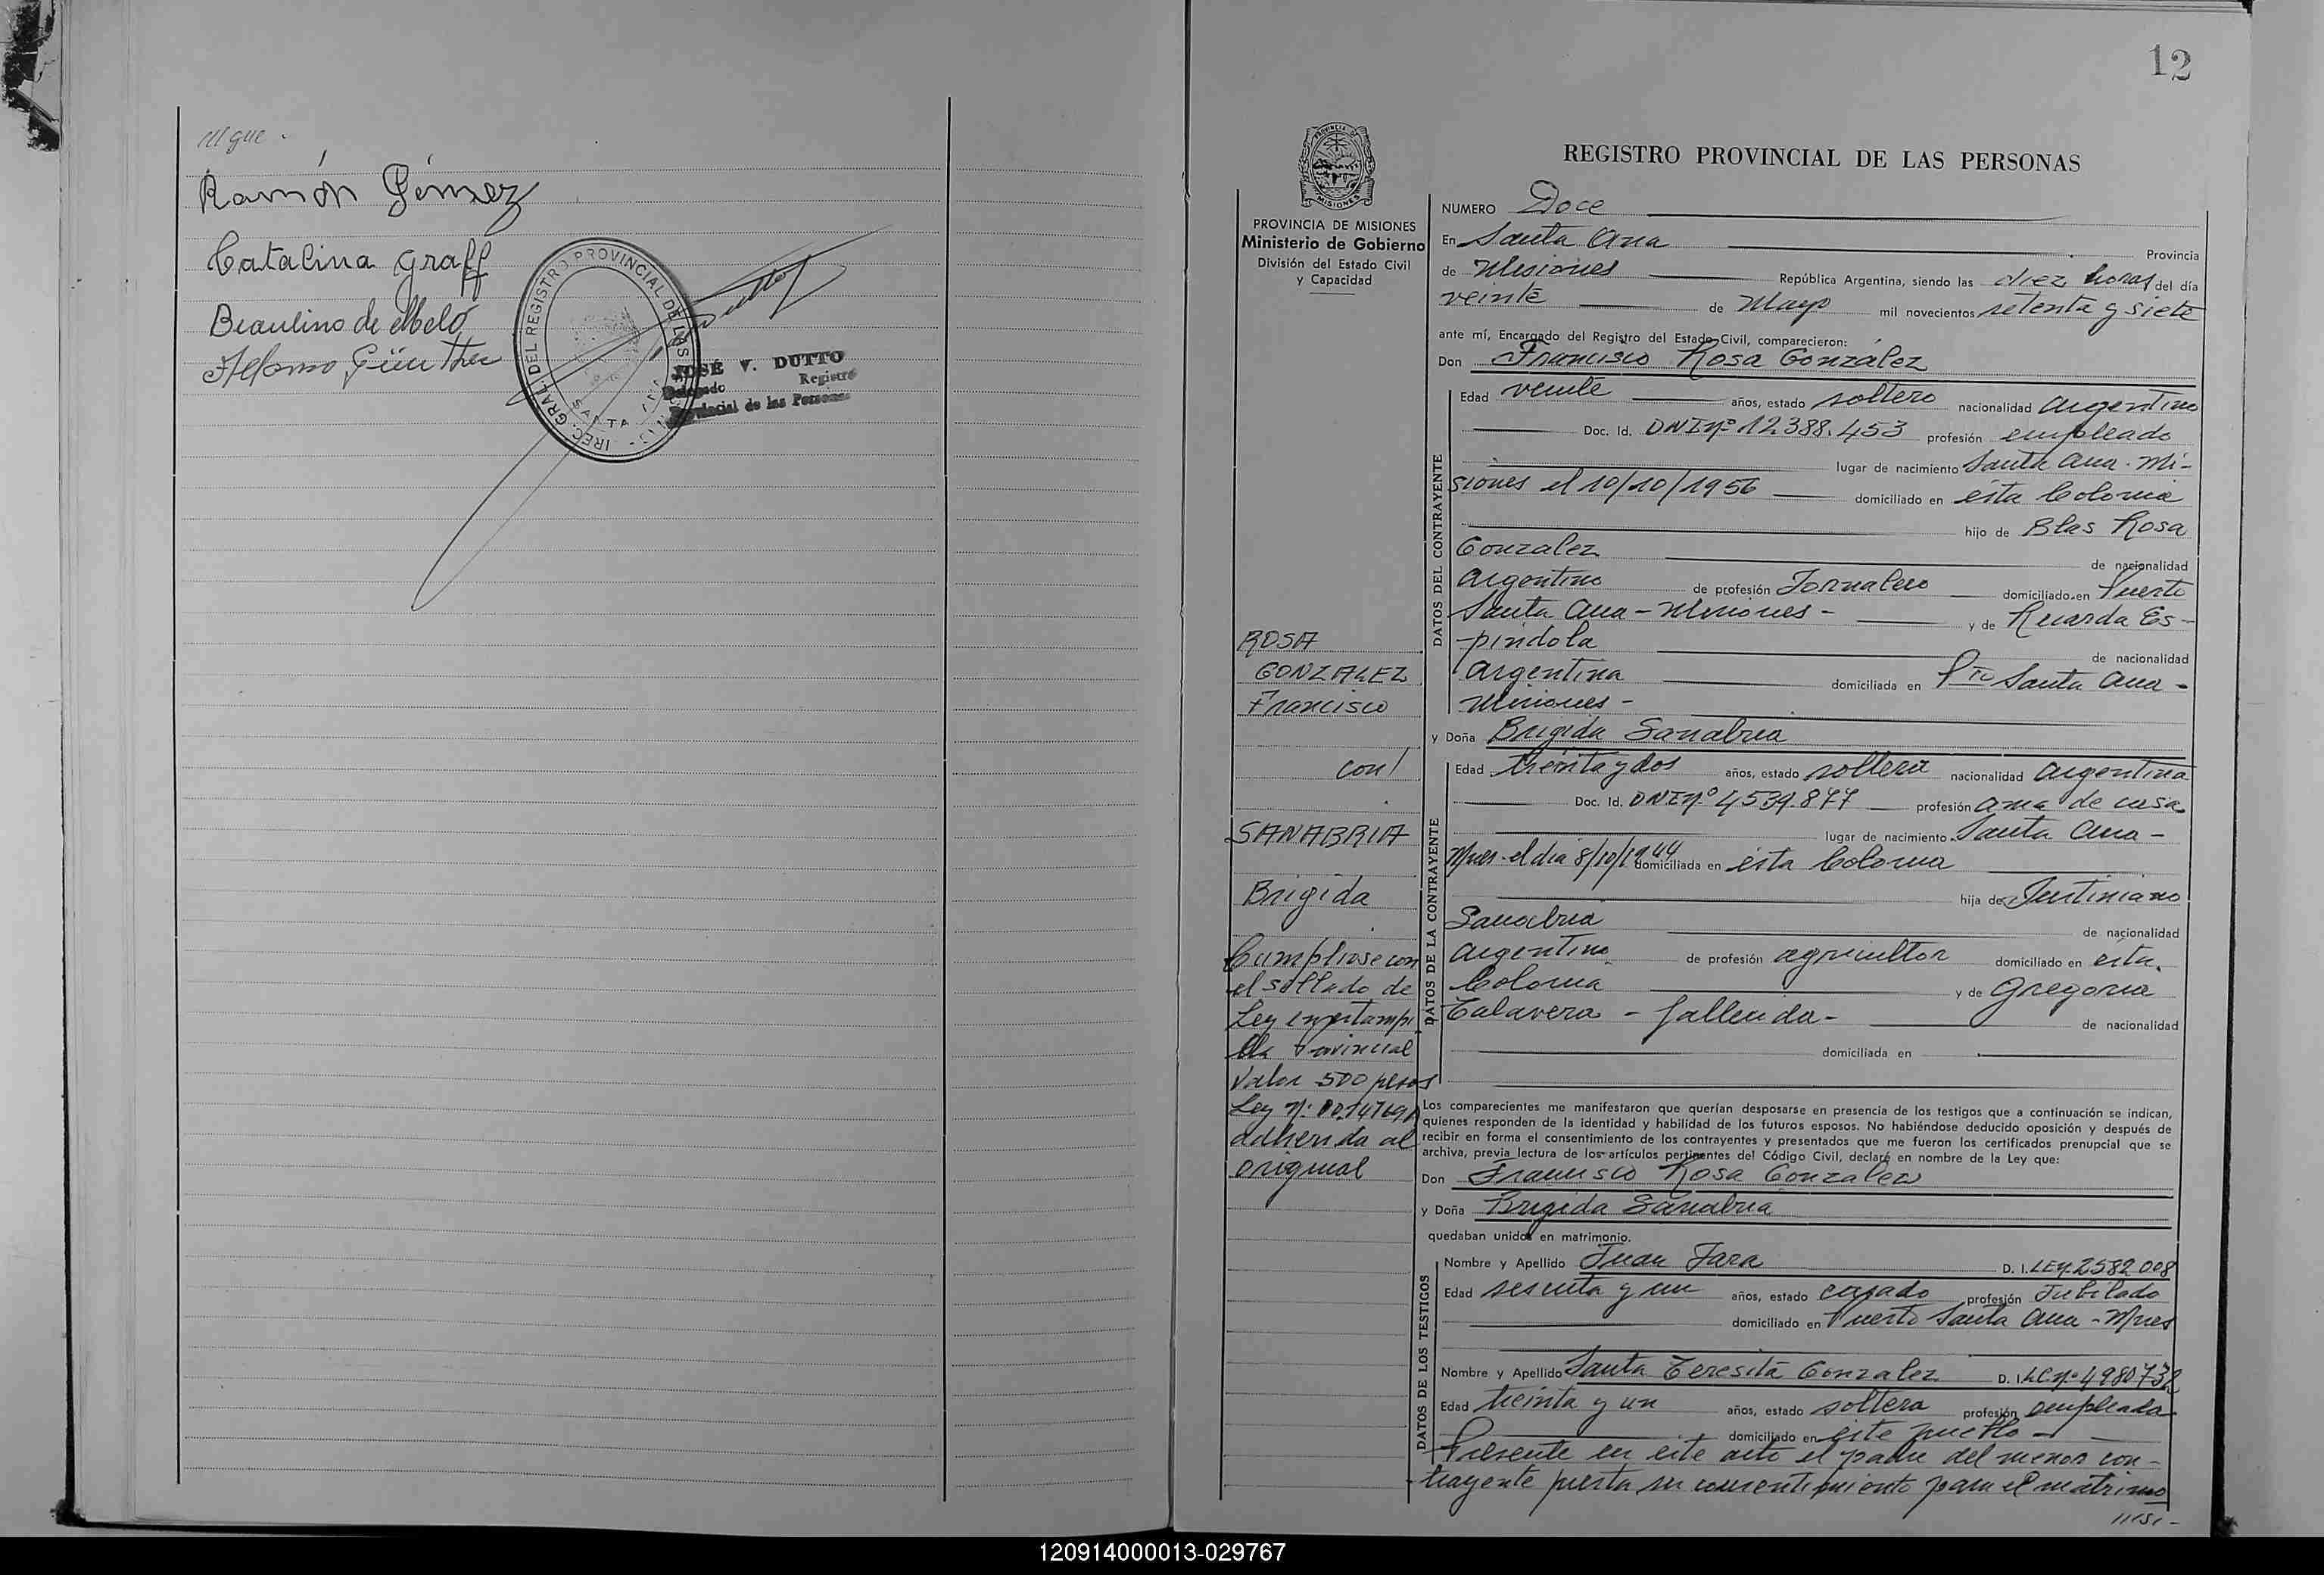 Ramón Gómez
Catalina Graff
Braulino de Melo
Alfonso Günther
DIREC. GRAL. DEL REGISTRO PROVINCIAL DE LAS
SANTA
JOSÉ V. DUTTO
Delegado Registro
Provincial de las Personas
12
PROVINCIA DE
MISIONES
REGISTRO PROVINCIAL DE LAS PERSONAS
PROVINCIA DE MISIONES
Ministerio de Gobierno
División del Estado Civil
y Capacidad
ROSA
GONZALEZ
Francisco
con/
SANABRIA
Brigida
Cumpliose con
el sellado de
Ley en estampi
lla Provincial
Valor 500 pesos
Ley Nº
adherida al
original
NUMERO Doce
En Santa Ana Provincia
de Misiones República Argentina, siendo las diez horas del día
veinte de Mayo mil novecientos setenta y siete
ante mí, Encargado del Registro del Estado Civil, comparecieron:
Don Francisco Rosa González
DATOS DEL CONTRAYENTE
Edad veinte años, estado soltero nacionalidad argentino
Doc. Id. DNI Nº 12.388.453 profesión empleado
lugar de nacimiento Santa Ana - Mi-
siones el 10/10/1956 domiciliado en ésta Colonia
hijo de Blas Rosa
Gonzalez de nacionalidad
argentino de profesión Jornalero domiciliado en Puerto
Santa Ana - Misiones - y de Ricarda Es-
píndola de nacionalidad
argentina domiciliada en Pto Santa Ana -
Misiones -
y Doña Brigida Sanabria
DATOS DE LA CONTRAYENTE
Edad treinta y dos años, estado soltera nacionalidad argentina
Doc. Id. DNI Nº 4.539.877 profesión ama de casa
lugar de nacimiento Santa Ana -
Mnes - el día 8/10/1944 domiciliada en ésta Colonia
hija de Justiniano
Sanabria de nacionalidad
argentino de profesión agricultor domiciliado en ésta
Colonia y de Gregoria
Talavera - fallecida - de nacionalidad
domiciliada en
Los comparecientes me manifestaron que querían desposarse en presencia de los testigos que a continuación se indican,
quienes responden de la identidad y habilidad de los futuros esposos. No habiéndose deducido oposición y después de
recibir en forma el consentimiento de los contrayentes y presentados que me fueron los certificados prenupcial que se
archiva, previa lectura de los artículos pertinentes del Código Civil, declaré en nombre de la Ley que:
Don Francisco Rosa Gonzalez
y Doña Brigida Sanabria
quedaban unidos en matrimonio.
DATOS DE LOS TESTIGOS
Nombre y Apellido Juan Jara D. I. LE Nº 2582008
Edad sesenta y un años, estado casado profesión Jubilado
domiciliado en Puerto Santa Ana - Mnes
Nombre y Apellido Santa Teresita Gonzalez D. I. LC Nº 4980732
Edad treinta y un años, estado soltera profesión empleada
domiciliado en este pueblo -
Presente en este acto el padre del menor con-
trayente presta su consentimiento para el matrimo
120914000013-029767